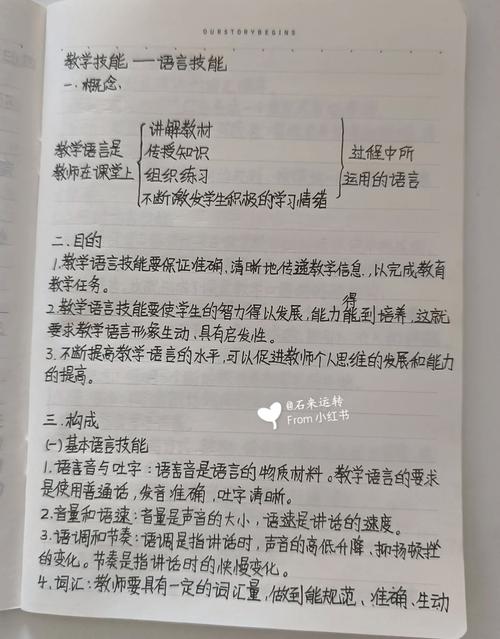 OURSTORYBEGINS
教学技能——语言技能
一.概念、
教学语言是
教师在课堂上
讲解教材
传授知识
组织练习
不断激发学生积极的学习情绪
过程中所
运用的语言
二.目的
1.教学语言技能要保证准确、清晰地传递教学信息,以完成教育
教学任务。
2.教学语言技能要使学生的智力得以发展,能力能到培养,这就
得
要求教学语言形象生动、具有启发性。
3.不断提高教学语言的水平,可以促进教师个人思维的发展和能力
的提高。
@石来运转
From 小红书
三.构成
(一)基本语言技能
1.语音与吐字:语音是语言的物质材料。教学语言的要求
是使用普通话,发音准确,吐字清晰。
2.音量和语速:音量是声音的大小,语速是讲话的速度。
3.语调和节奏:语调是指讲话时,声音的高低升降、抑扬顿挫
的变化。节奏是指讲话时的快慢变化。
4.词汇:教师要具有一定的词汇量,做到能规范、准确、生动